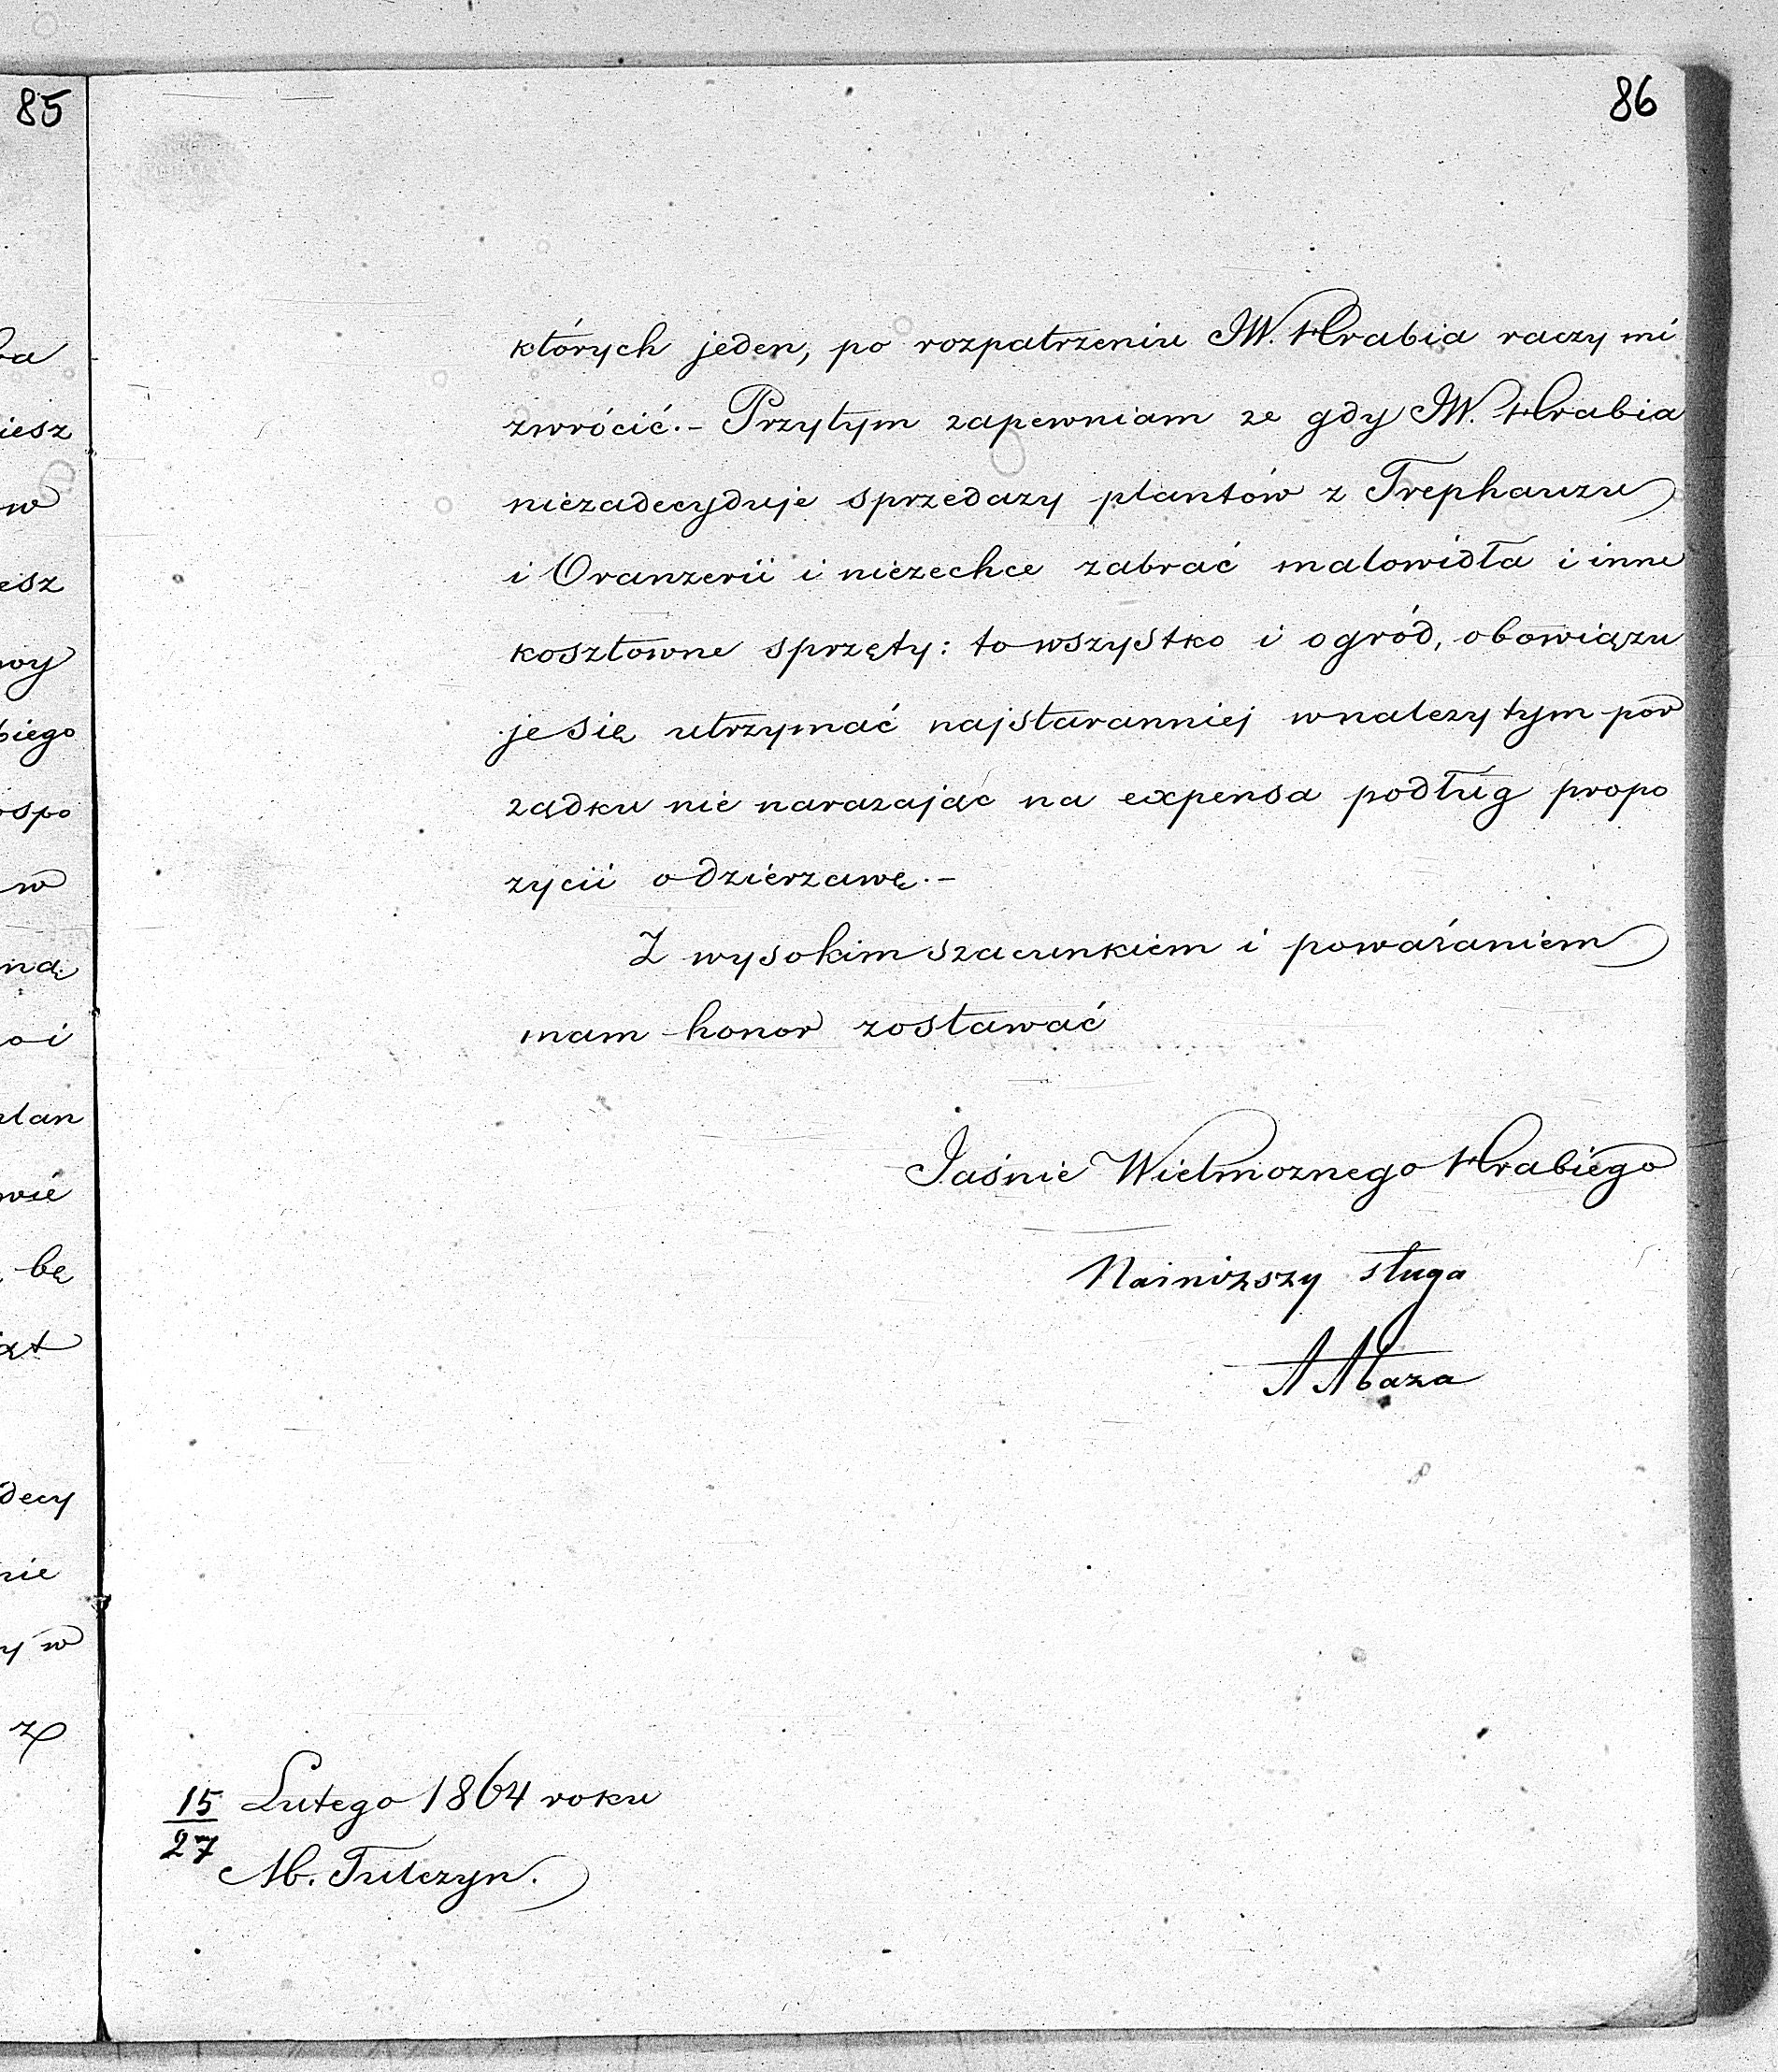 85
86
ra
iesz
w
esz
woy
biego
ospo
w
ną
o i
plan
wie
bę
decy
nie
y w
z
których jeden, po rozpatrzeniu JW. Hrabia raczy mi
zwrócić.- Przytym zapewniam ze gdy JW. Hrabia
niezadecyduje sprzedazy plantów z Trephauzu
i Oranzerii i niezechce zabrać malowidła i inne
kosztowne sprzęty: to wszystko i ogród, obowiązu
je się utrzymać najstaranniej wnalezytym por
ządku nie narazając na expensa podług propo
zycii o dzierzawę.-
Z wysokim szacunkiem i poważaniem
mam honor zostawać
Jaśnie Wielmoznego Hrabiego
Nainiższy sługa
A Abaza
15/27 Lutego 1864 roku
M. Tulczyn.